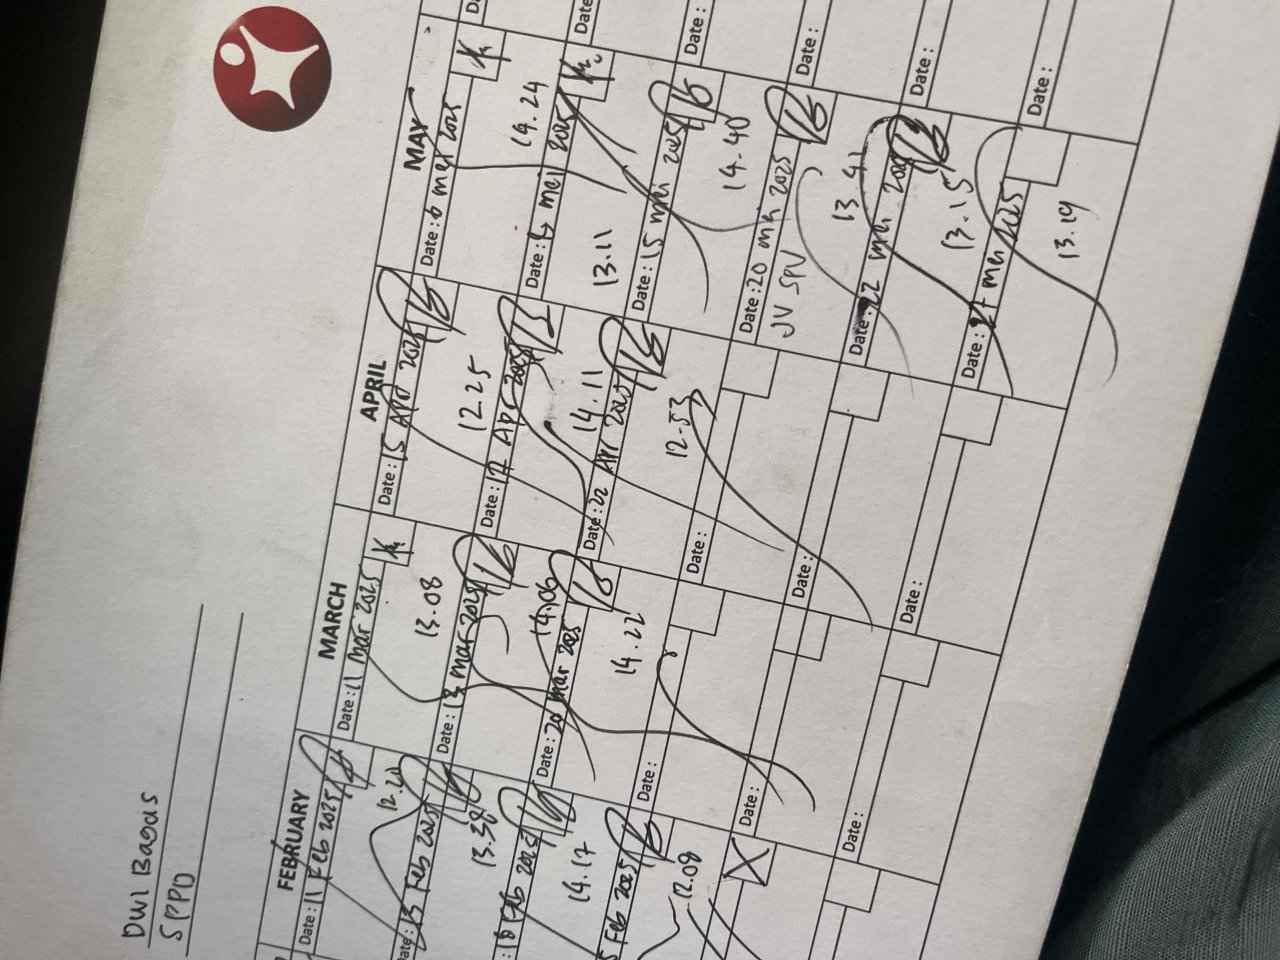 Dwi Bagus
SPPD
FEBRUARY
Date: 11 Feb 2025
12.20
Date: 13 Feb 2025
13.38
: 18 Feb 2025
14.17
5 Feb 2025
12.08
MARCH
Date: 11 Mar 2025
13.08
Date: 13 Mar 2025
14.06
Date: 20 Mar 2025
14.22
Date:
Date:
Date:
APRIL
Date: 15 Apr 2025
12.25
Date: 17 Apr 2025
14.11
Date: 22 Apr 2025
12.53
Date:
Date:
Date:
MAY
Date: 6 mei 2025
14.24
Date: mei 2025
13.11
Date: 15 mei 2025
14.40
Date: 20 mei 2025
JV SPV
13.41
Date: 22 mei 2025
13.15
Date: 27 mei 2025
13.19
Date:
Date:
Date:
Date:
Date: